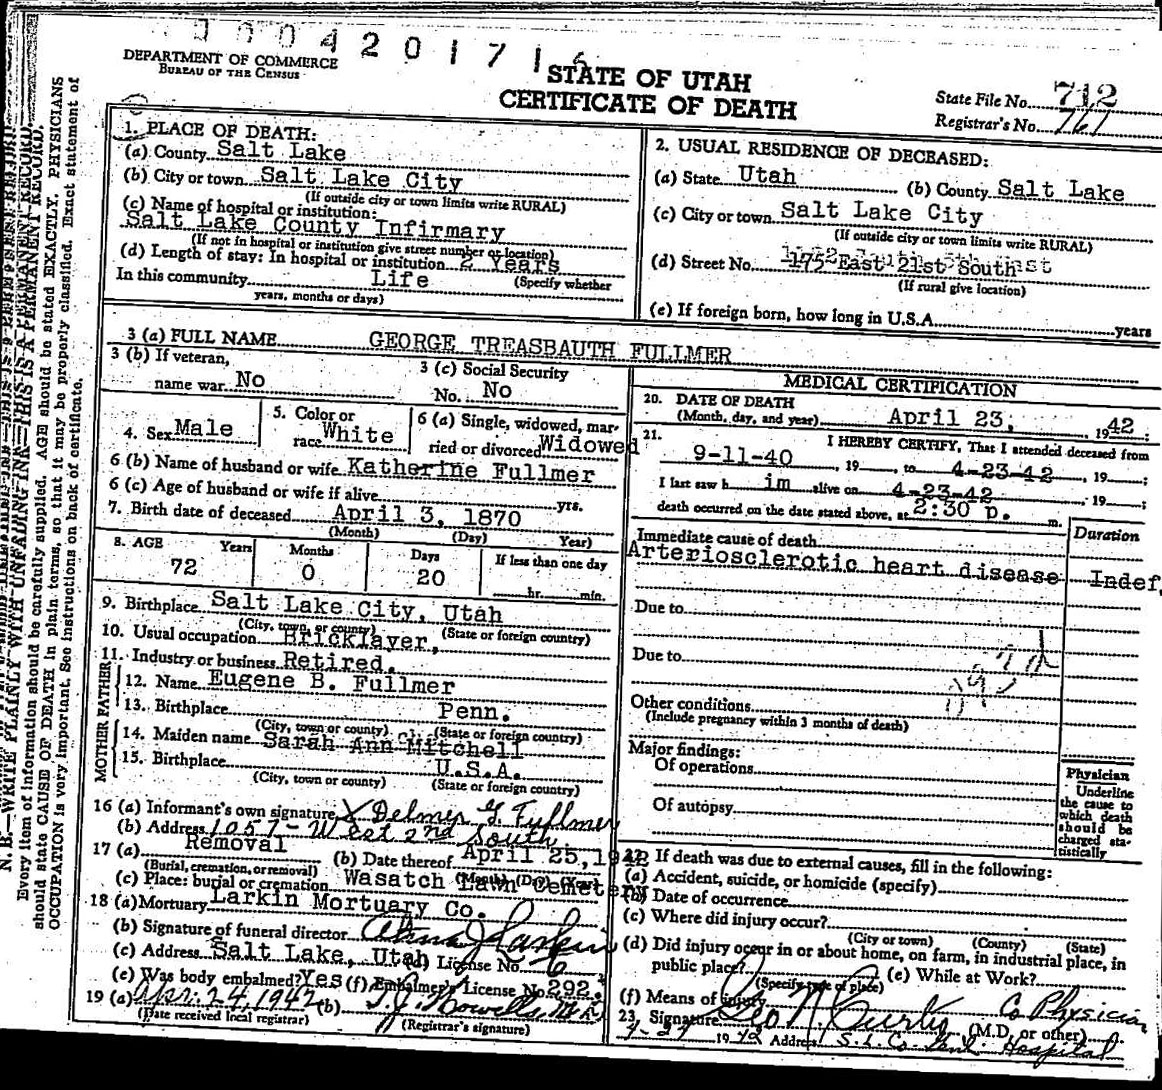 0004201716
DEPARTMENT OF COMMERCE
BUREAU OF THE CENSUS
STATE OF UTAH
CERTIFICATE OF DEATH
State File No. 712
Registrar's No. 761
N. B.—WRITE PLAINLY WITH UNFADING INK—THIS IS A PERMANENT RECORD.
Every item of information should be carefully supplied. AGE should be stated EXACTLY. PHYSICIANS
should state CAUSE OF DEATH in plain terms, so that it may be properly classified. Exact statement of
OCCUPATION is very important. See instructions on back of certificate.
1. PLACE OF DEATH:
(a) County Salt Lake
(b) City or town Salt Lake City
(If outside city or town limits write RURAL)
(c) Name of hospital or institution:
Salt Lake County Infirmary
(If not in hospital or institution give street number or location)
(d) Length of stay: In hospital or institution 2 Years
(Specify whether
In this community Life
years, months or days)
2. USUAL RESIDENCE OF DECEASED:
(a) State Utah (b) County Salt Lake
(c) City or town Salt Lake City
(If outside city or town limits write RURAL)
(d) Street No. East 21st South
(If rural give location)
(e) If foreign born, how long in U.S.A. years
3 (a) FULL NAME GEORGE TREASBAUTH FULLMER
3 (b) If veteran,
name war No
3 (c) Social Security
No. No
4. Sex Male
5. Color or
race White
6 (a) Single, widowed, mar-
ried or divorced Widowed
6 (b) Name of husband or wife Katherine Fullmer
6 (c) Age of husband or wife if alive yrs.
7. Birth date of deceased April 3, 1870
(Month) (Day) Year)
8. AGE Years Months Days If less than one day
72 0 20 hr. min.
9. Birthplace Salt Lake City, Utah
(City, town, or county) (State or foreign country)
10. Usual occupation Bricklayer,
11. Industry or business Retired.
FATHER
12. Name Eugene B. Fullmer
13. Birthplace Penn.
(City, town or county) (State or foreign country)
MOTHER
14. Maiden name Sarah Ann Mitchell
15. Birthplace U.S.A.
(City, town or county) (State or foreign country)
16 (a) Informant's own signature X Delmer G. Fullmer
(b) Address 1057 - West 2nd South
17 (a) Removal (b) Date thereof April 25, 1942
(Burial, cremation, or removal) (Month) (Day) (Year)
(c) Place: burial or cremation Wasatch Lawn Cemetery
18 (a) Mortuary Larkin Mortuary Co.
(b) Signature of funeral director Larkin
(c) Address Salt Lake, Utah (d) License No. 6
(e) Was body embalmed? Yes (f) Embalmer's License No. 292.
19 (a) Apr. 24, 1942 (b) T. J. Howells M.D.
(Date received local registrar) (Registrar's signature)
MEDICAL CERTIFICATION
20. DATE OF DEATH
(Month, day, and year) April 23, 1942;
21. I HEREBY CERTIFY, That I attended deceased from
9-11-40, 19 , to 4-23-42, 19 ;
I last saw h im alive on 4-23-42 19 ;
death occurred on the date stated above, at 2:30 p. m.
Immediate cause of death Duration
Arteriosclerotic heart disease Indef.
Due to
Due to
Other conditions
(Include pregnancy within 3 months of death)
Major findings:
Of operations
Of autopsy
Physician
Underline
the cause to
which death
should be
charged sta-
tistically
22. If death was due to external causes, fill in the following:
(a) Accident, suicide, or homicide (specify)
(b) Date of occurrence
(c) Where did injury occur?
(City or town) (County) (State)
(d) Did injury occur in or about home, on farm, in industrial place, in
public place? (e) While at Work?
(Specify type of place)
(f) Means of injury
23. Signature Geo N. Curtis Co Physician
(M.D. or other)
4-24 1942 Address S. L. Co. Genl. Hospital